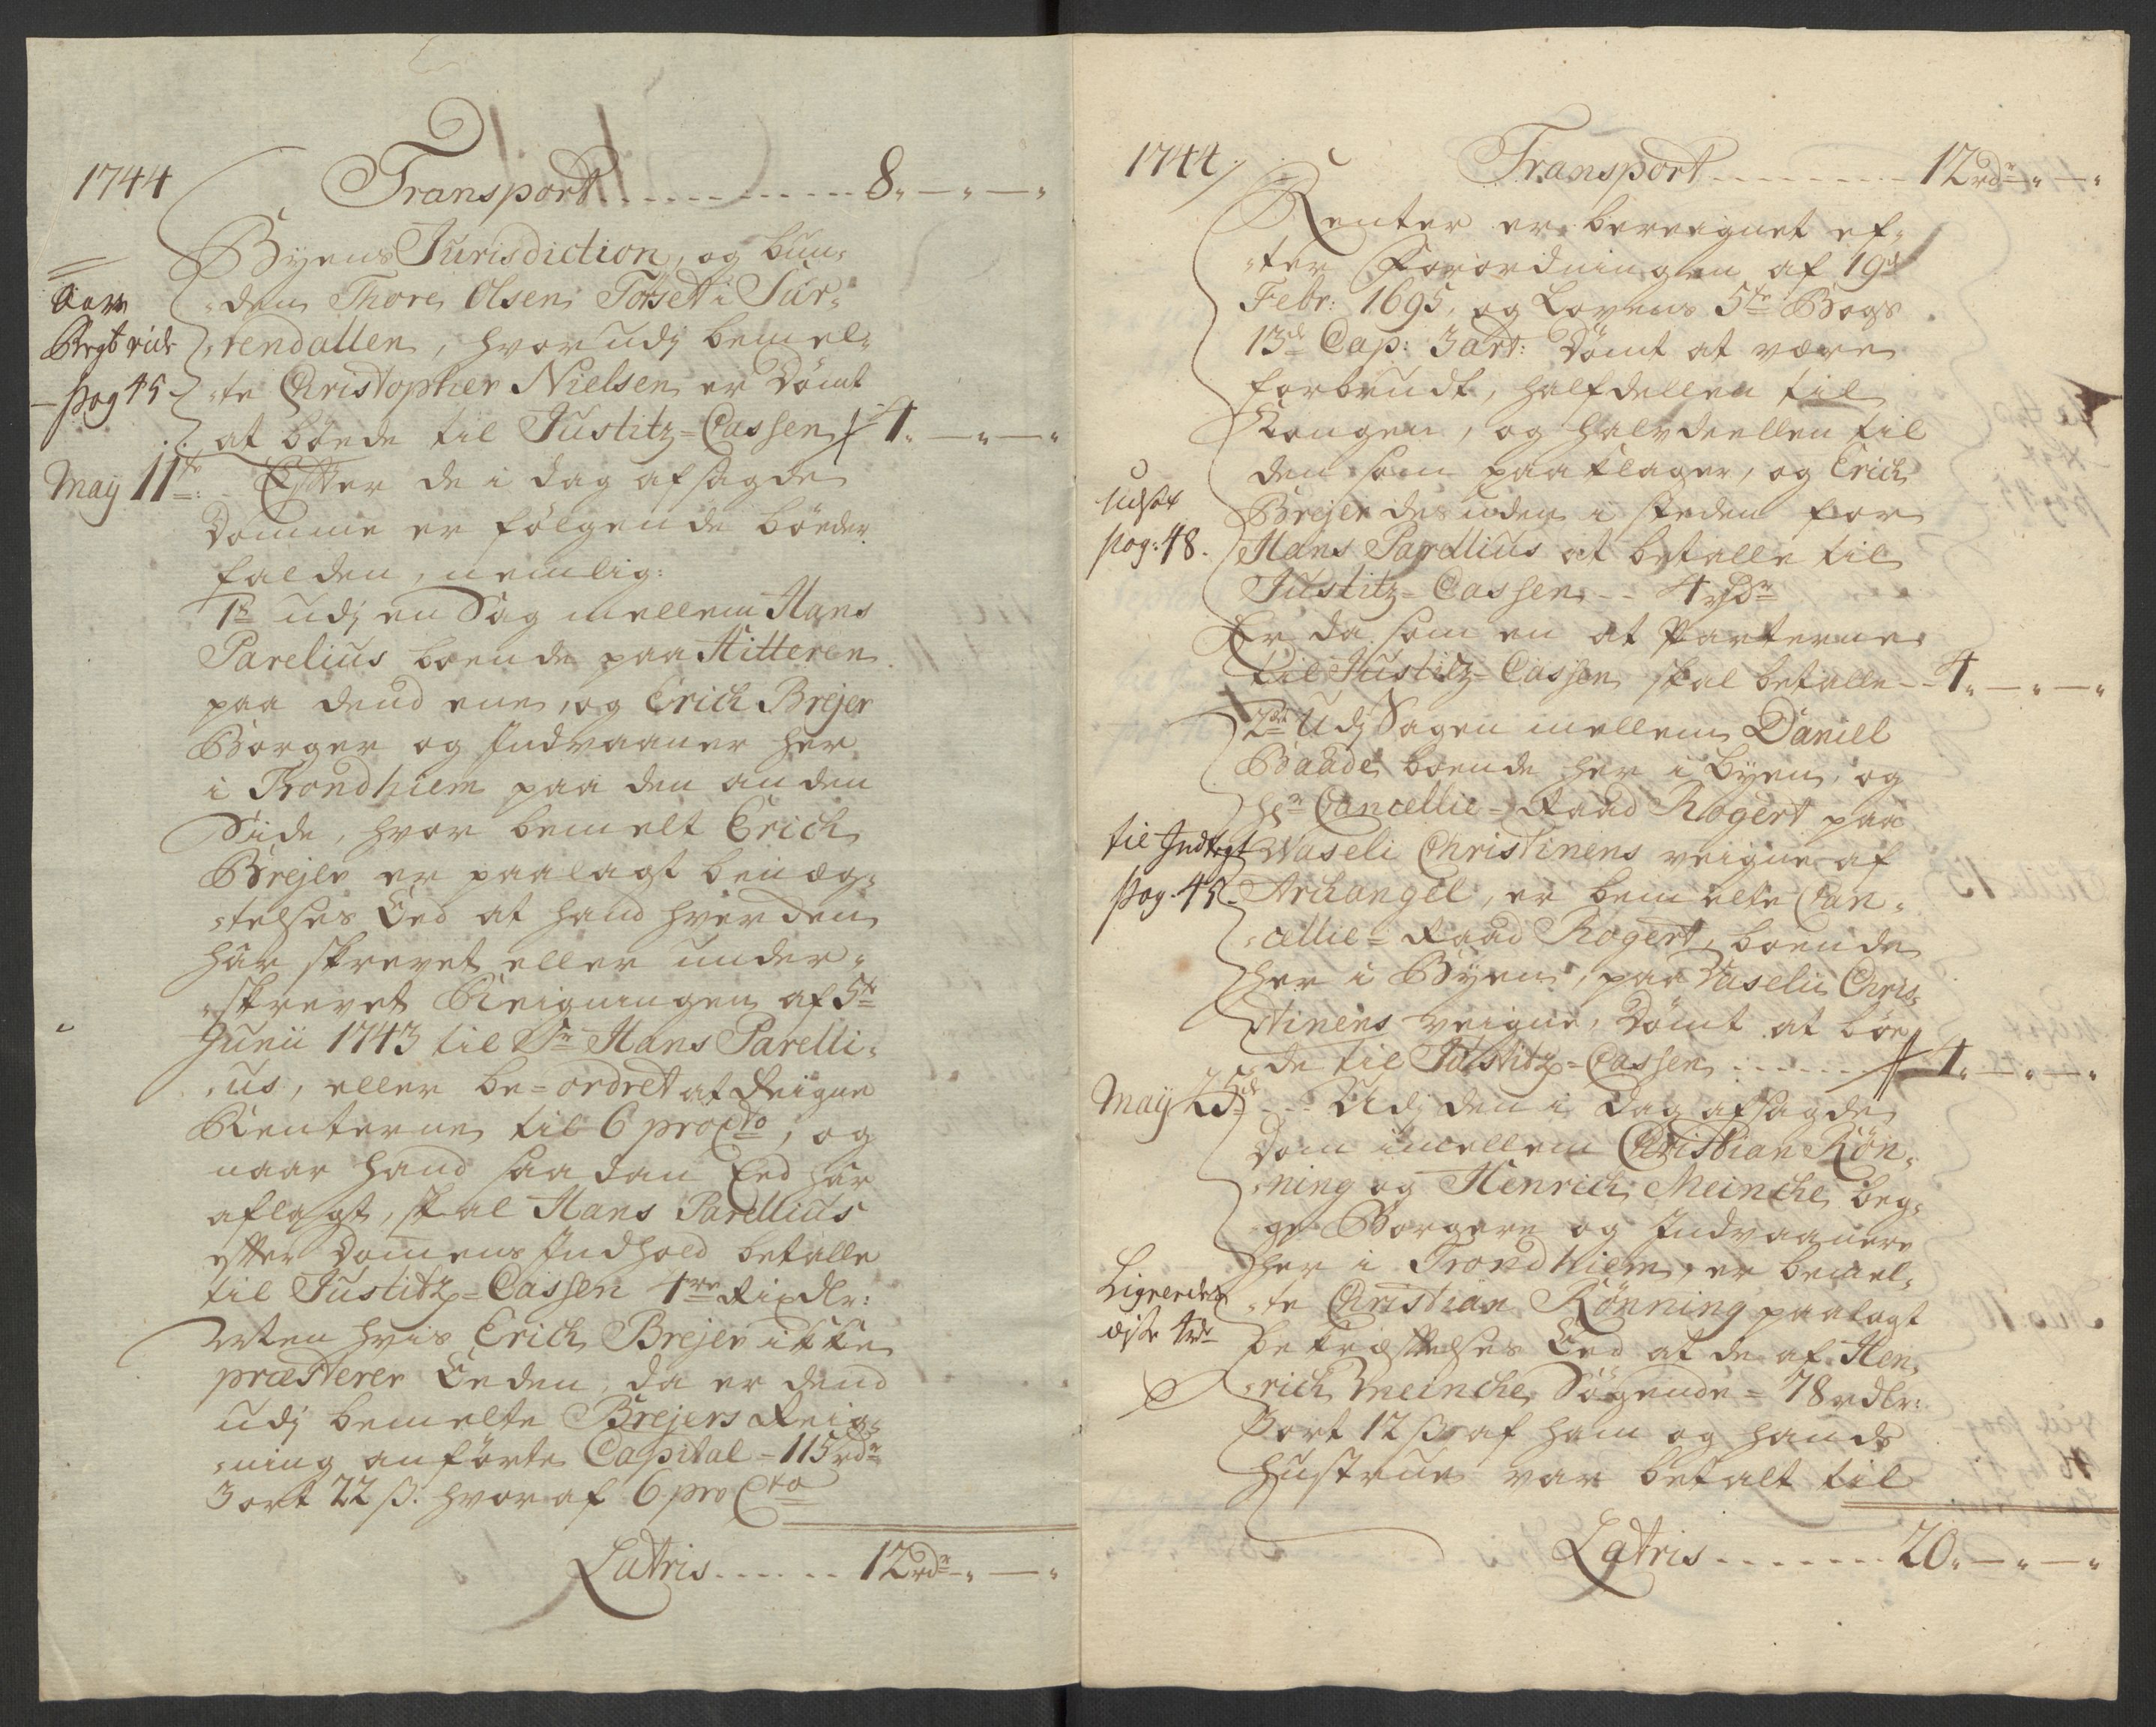 1744
Transport . . . . . . . . . . . 8„ — „ — „
Byens Jurisdiction, og bun-
-den Thore Olsen Torset i Sur-
-rendallen, hvorudj bemel-
-te Christopher Nielsen er Dömt
at böede til Justitz-Cassen 4„ — „ — „
vide
pag 45
May 11te: Effter de i dag afsagde
Domme er fölgende böeder
falden, nemlig:
1te udj en Sag mellem Hans
Parelius boende paa Hitteren
paa dend ene, og Erich Brejer
Borger og Indvaaner her
i Trondhiem paa den anden
Side, hvor bemelt Erich
Brejer er paalagt benæg-
-telses Eed at hand hverden
har skrevet eller under-
-skrevet Reigningen af 5te
Junii 1743 til Sr Hans Parelli-
-us, eller be-ordret at Reigne
Renterne til 6 pro Cto, og
naar hand saadan Eed har
aflagt, skal Hans Parellius
effter Domens Indhold betalle
til Justitz-Cassen 4re Rixdlr:
Mten hvis Erich Brejer ikke
præsterer Eeden, da er dend
udj bemelte Brejers Reig-
-ning anförte Capital = 115 rdr
3 ort 22 ß. hvoraf 6 pro Cto
Latris . . . . . . 12 rdr — „ — „
1744
Transport . . . . . . . . . 12 rdr — „ — „
Renter er bereignet ef-
-ter Forordningen af 19de
Febr: 1695, og Lovens 5te Bogs
13de Cap: 3 art: Dömt at være
forbrudt, halfdellen til
Kongen, og halvdeellen til
den som paaklager, og Erich
Brejer desuden i steden for
Hans Parellius at betalle til
Justitz-Cassen - - 4 rdr
pag: 48.
Er da som en at Parterne
til Justitz-Cassen skal betalle - - 4„ — „ — „
2det Udj Sagen mellem Daniel
Baade boende her i Byen, og
Hr Cancellie-Raad Rogert paa
Waseli Christinens veigne af
Archangel, er bemelte Can-
-cellie-Raad Rogert, boende
her i Byen, paa Vaselii Chris-
-tinens veigne, Dömt at böe-
-de til Justitz-Cassen . . . . . . . 4„ — „ — „
til Indtegt
pag. 45
May 25de - - - Udj den i Dag afsagde
Dom imellem Christian Rön-
-ning og Henrich Meincke beg-
-ge Borgere og Indvaanere
her i Trondhiem, er bemel-
-te Christian Rönning paalagt
bekræfftelses Eed at de af Hen-
-rich Meincke Sögende = 78 rdlr:
3 ort 12 ß af ham og hands
Hustrue var betalt til
Ligeredes
disse 4 rdr
Latris . . . . . . . . 20„ — „ — „